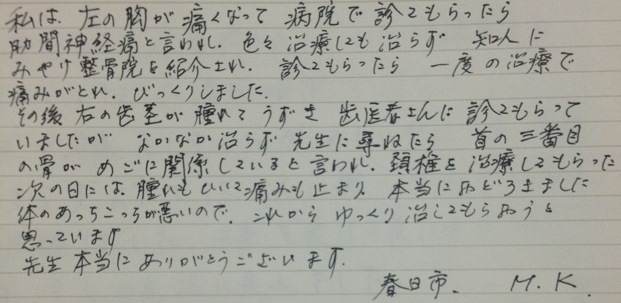 私は 左の胸が痛くなって 病院で診てもらったら
肋間神経痛と言われ、色々治療しても治らず 知人に
みやけ整骨院を紹介され、診てもらったら 一度の治療で
痛みがとれ、びっくりしました。
その後 右の歯茎が腫れて うずき 歯医者さんに診てもらって
いましたが なかなか治らず 先生に尋ねたら 首の三番目
の骨が めごに関係していると言われ、頚椎を治療してもらった
次の日には、腫れもひいて痛みも止まり 本当におどろきました
体のあっちこっちが悪いので、これから ゆっくり治してもらおうと
思っています
先生 本当にありがとうございます。
春日市. M.K.